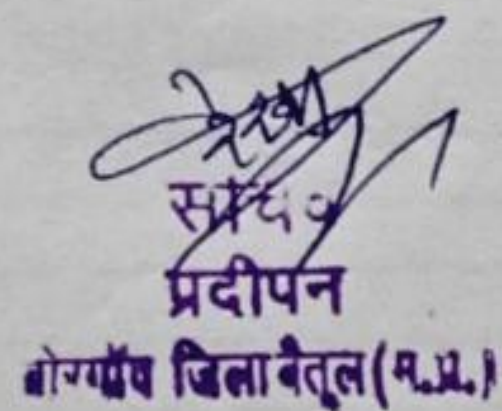 रेखा
सचिव
प्रदीपन
बोरगाँव जिला बैतूल (म.प्र.)